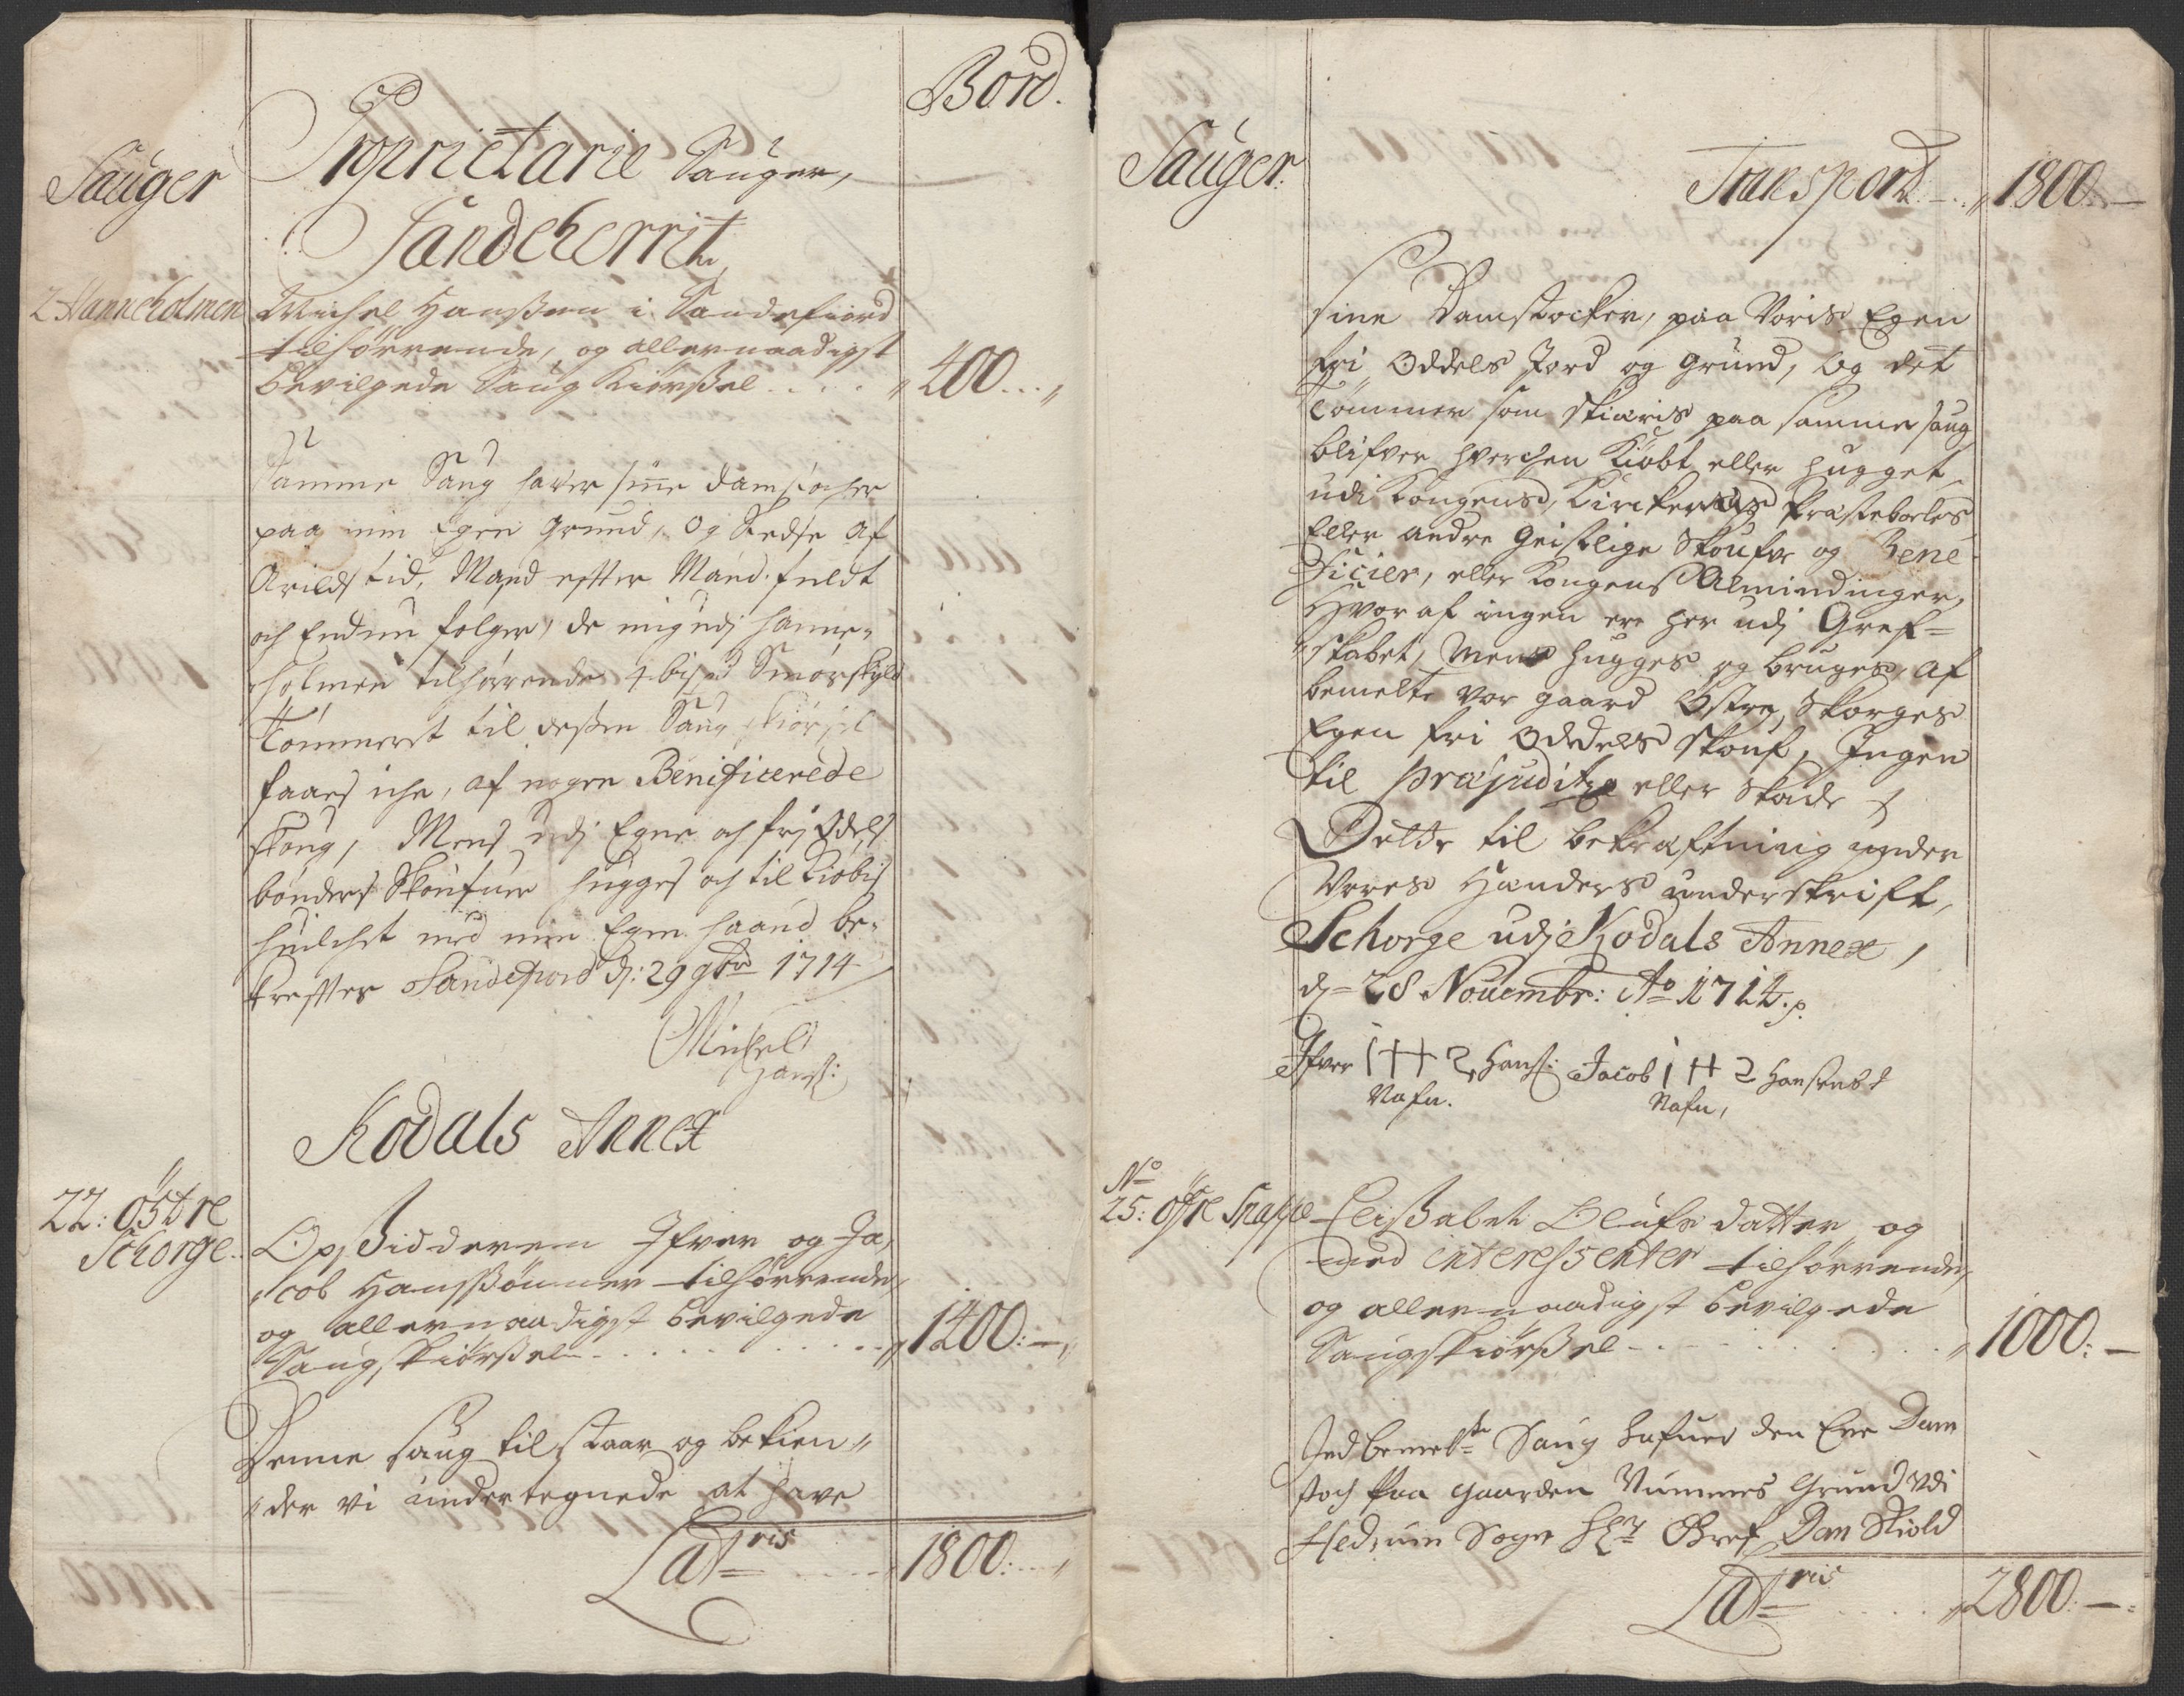 Bord.
Sauger
Proprietarie Sauger,
Sandeherrit
2 Hanneholmen
Michel Hanßen i Sandefiord
tilhørrende, og allernaadigst
bevilgede Saug Kiørßel . . . . 400 . . .
Samme Saug haver sine damstocher
paa min Egen Grund, Og Stedse af
Arilds tid, Mand efter Mand fuldt
och Endnu følger, de mig udj Hanne-
holmen tilhørrende 4 bis℔ Smørskyld
Tømmeret til deßen Saug skiørsel
faaes iche, af nogen Benificerede
skoug, Mens udj Egne och frj Odels
bønders Skoufuer hugges och til Kiøbis
huilchet med min Egen haand be-
krefftes Sandefiord d: 29 9br 1714
Michel
Hanß:
Kodals Annex
22: Östre
Schorge.
Opsidderen Ifver og Ja-
cob Hanssønner tilhørrende,
og allernaadigst bevilgede
Saugskiørßel . . . . . . . . 1400: —
Denne saug tilstaar og bekien-
der vi undertegnede at have
Lat=ris . . . . 1800: . . .
Sauger.
Transport . . . 1800. —
sine Damstocker, paa Voris Egen
fri Oddels Jord og grund, og det
Tømmer som skiæris paa samme saug
blifver hverchen Kiøbt eller hugget
udi Kongens, Kirckens præstebolers
Eller andre geistlige Skoufve og Bene-
ficier, eller Kongens Almindinger,
Hvor af ingen ere her udj Gref=
skabet, Mens hugges og bruges, af
bemelte vor gaard Östre, Skorges
Egen fri Oddels Skouf, Ingen
til præjuditze eller Skade
Dette til bekræftning under
Vores Hænders underskrift,
Schorge udj Kodals Annex,
d= 28 Nouembr: Ao 1714.
Ifver I H 2, Hanß: Jacob i H 2 Hansens
Nafn. Nafn,
No
25: Øfre Snappe
Elißabet Olufs datter, og
med interessenter tilhørrende,
og allernaadigst bevilgede
Saugskiørßel . . . . . . . 1000: —
Ved bemelte Saug hafuer den Ene Dam
stoch Paa gaarden Nummes Grund udi
Hedrum Sogn Hr Gref Dan Skiold
Lat=ris . . . . 2800: —